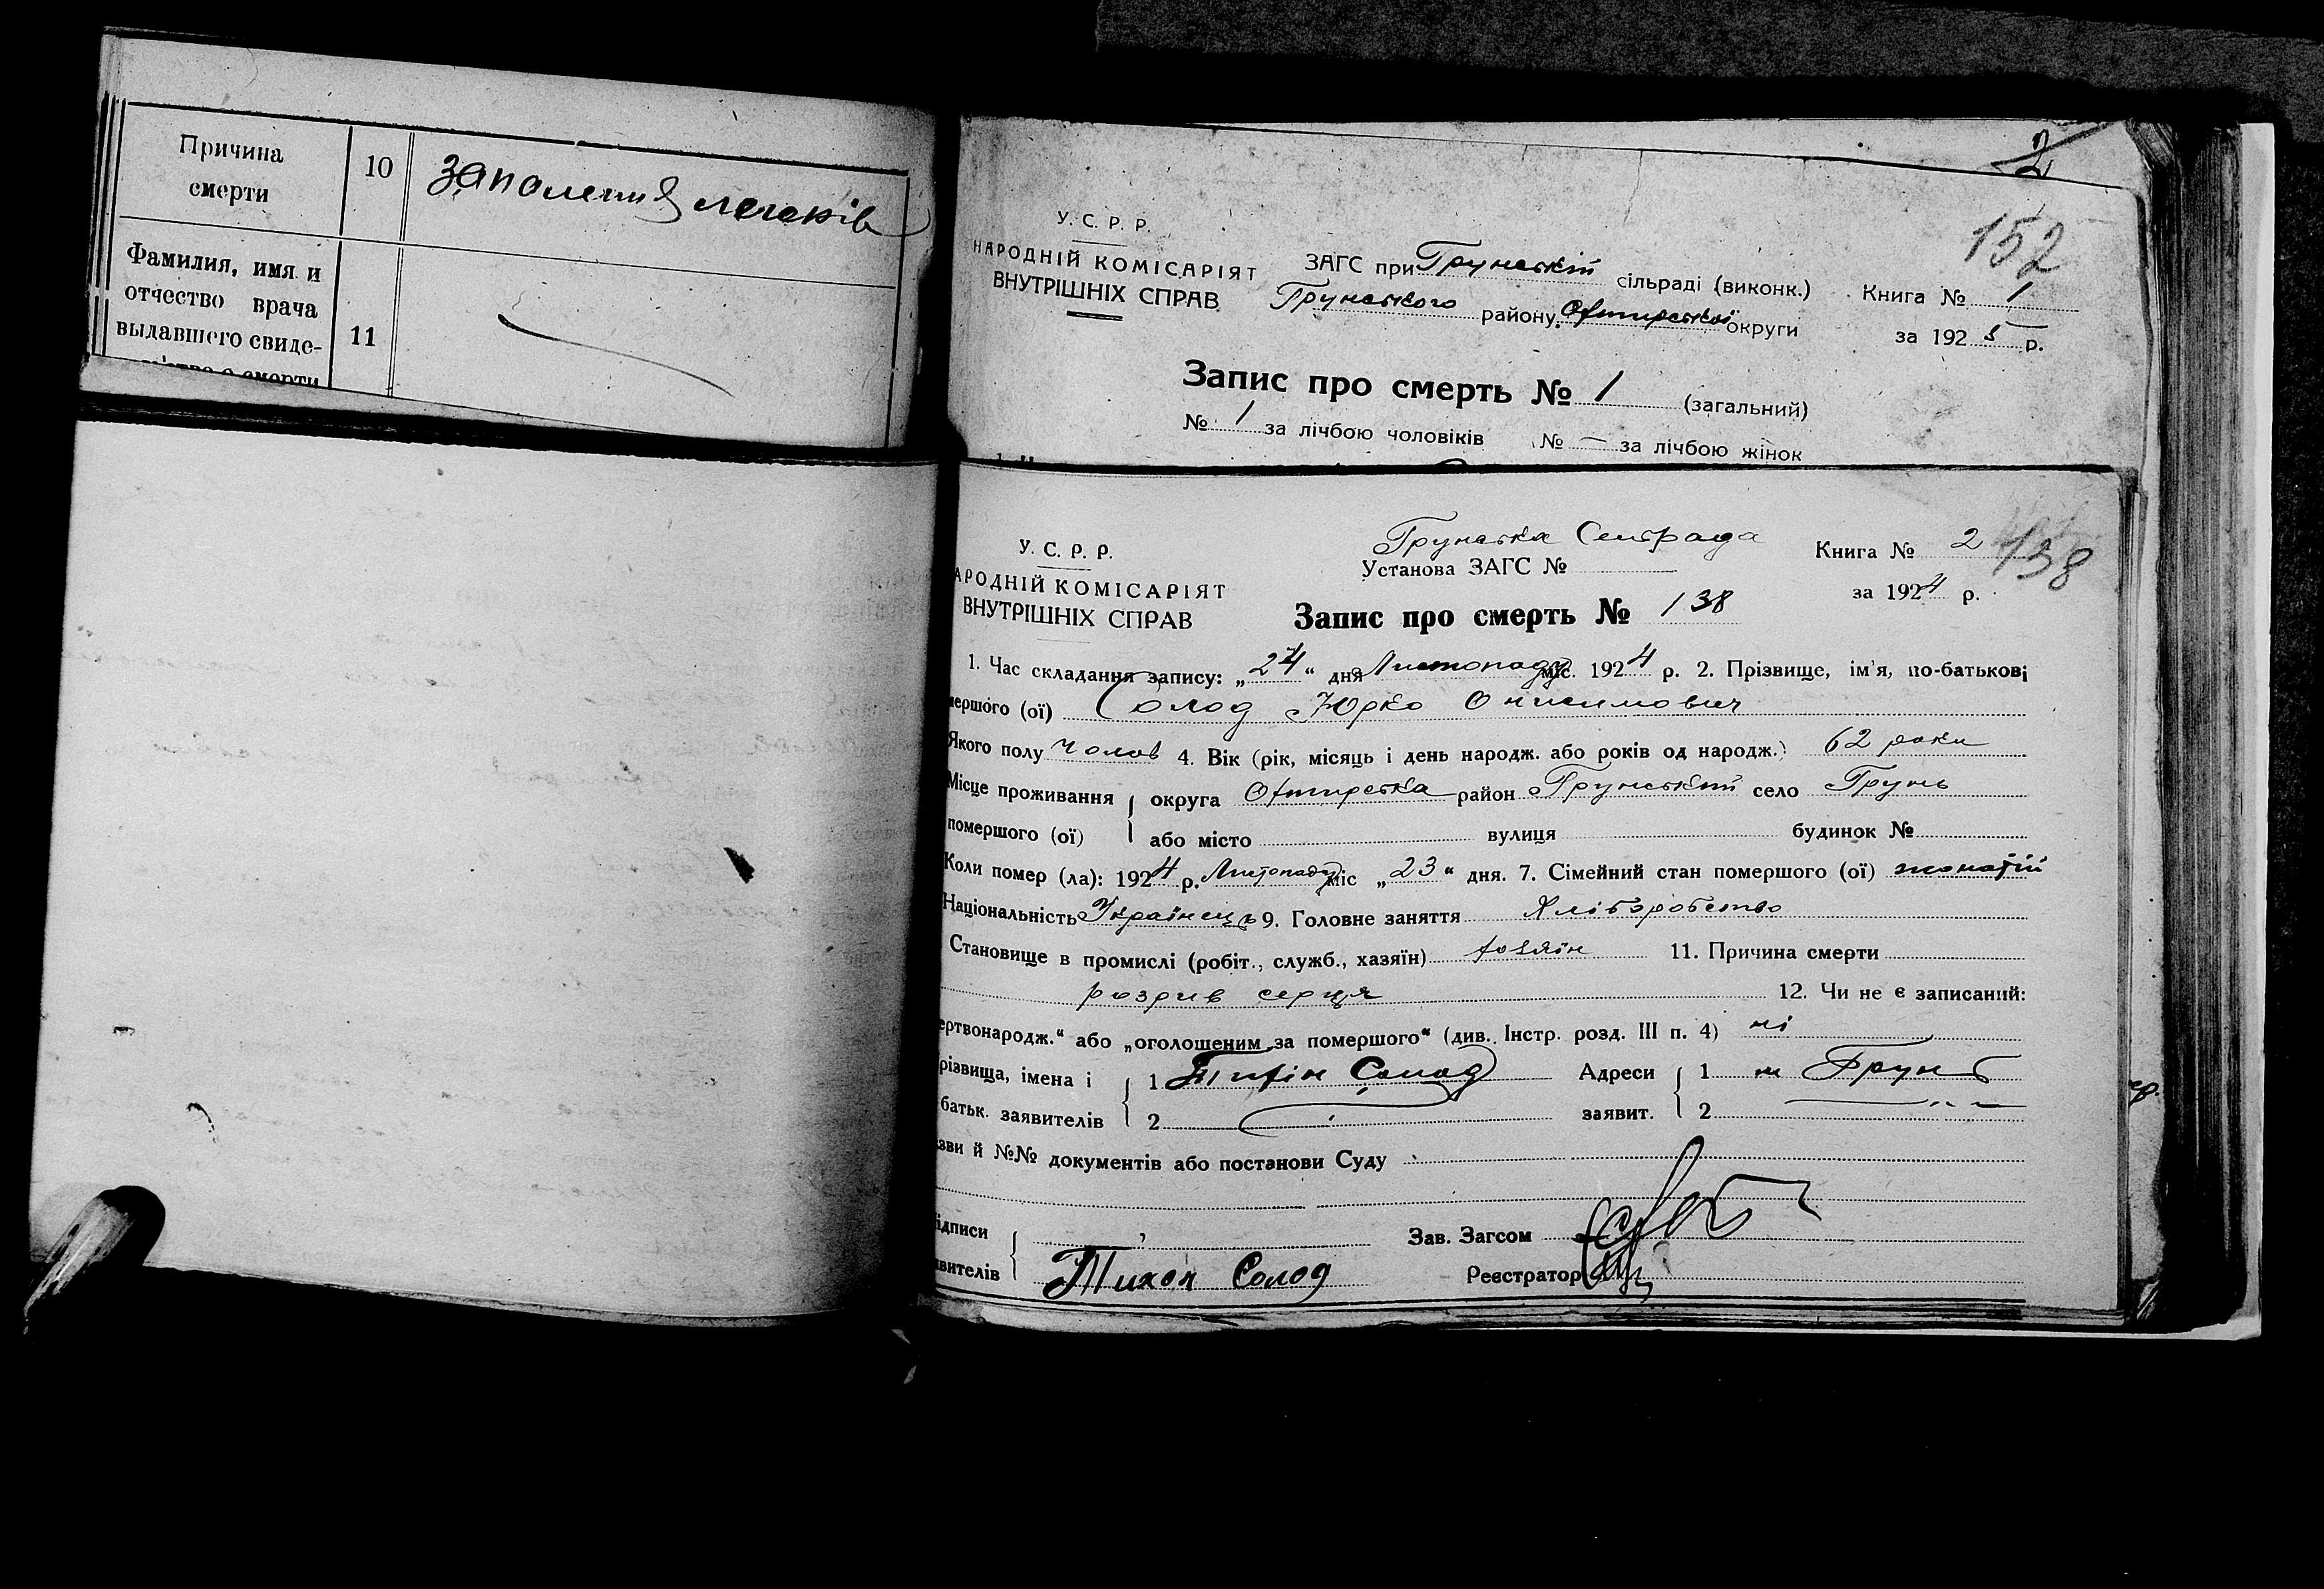 Причина
смерти
10
запаления легенів
Фамилия, имя и
отчество врача
выдавшего свиде-
11
2
152
У. С. Р. Р.
НАРОДНІЙ КОМІСАРІЯТ
ВНУТРІШНІХ СПРАВ
ЗАГС при Грунській сільраді (виконк.)
Грунського району Охтирської округи
Книга № 1
за 1925 р.
Запис про смерть № 1 (загальний)
№ 1 за лічбою чоловіків № — за лічбою жінок
У. С. Р. Р.
АРОДНІЙ КОМІСАРІЯТ
ВНУТРІШНІХ СПРАВ
Грунська Сельрада
Установа ЗАГС №
Книга № 2
138
за 1924 р.
Запис про смерть № 138
1. Час складання запису: „24“ дня Листопаду міс. 1924 р. 2. Прізвище, ім'я, по-батькові
мершого (ої) Солод Юрко Онисимович
Якого полу чолов 4. Вік (рік, місяць і день народж. або років од народж.) 62 роки
Місце проживання округа Охтирська район Грунський село Грунь
помершого (ої) або місто вулиця будинок №
Коли помер (ла): 1924 р. Листопаду міс „23“ дня. 7. Сімейний стан помершого (ої) жонатий
Національність Українець 9. Головне заняття Хліборобство
Становище в промислі (робіт., служб., хазяїн) хозяін 11. Причина смерти
розрив серця 12. Чи не є записаний:
ертвонародж.“ або „оголошеним за помершого“ (див. Інстр. розд. III п. 4) ні
різвища, імена і 1 Тихін Солод Адреси 1 м Грунь
батьк. заявителів 2 заявит. 2
зви й №№ документів або постанови Суду
ідписи Зав. Загсом
явителів Тихон Солод Реєстратор